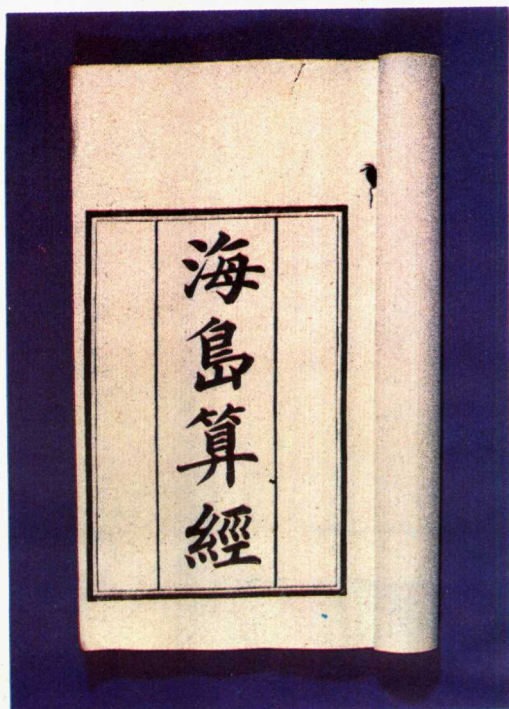 海島算經